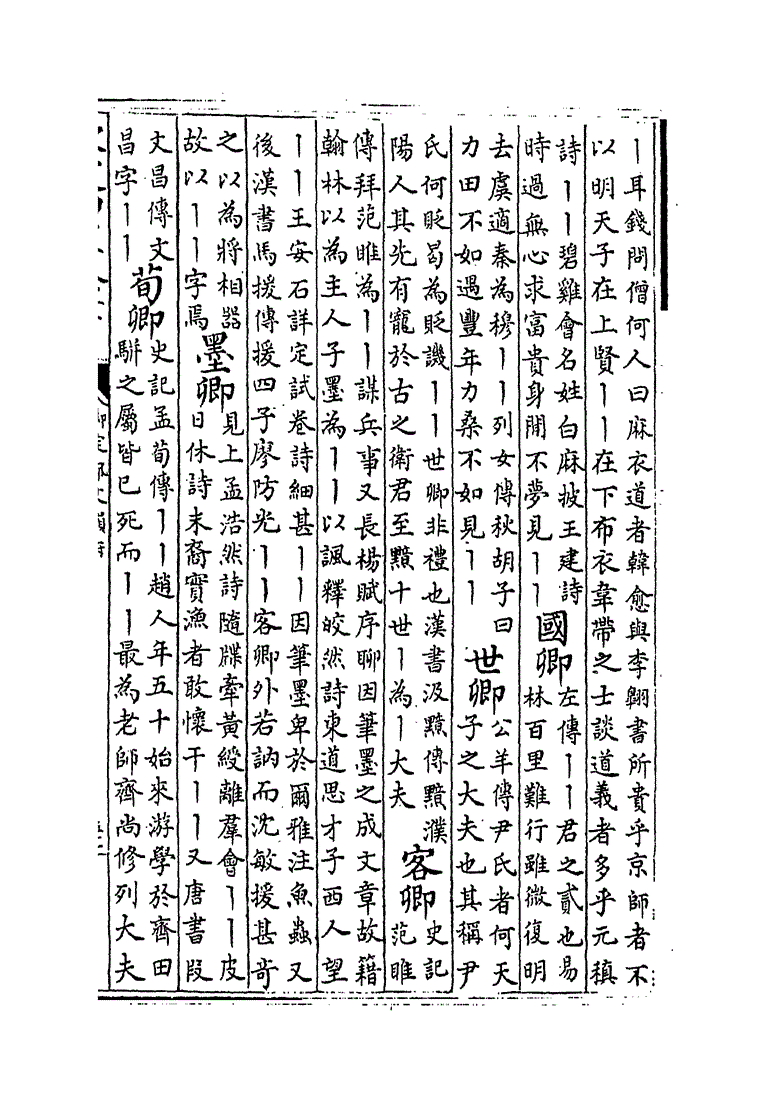 丨耳錢問僧何人曰麻衣道者韓愈與李翺書所貴乎京師者不
以明天子在上賢丨丨在下布衣韋帶之士談道義者多乎元稹
詩丨丨碧雞會名姓白麻披王建詩
時過無心求富貴身閒不夢見丨丨
國卿
左傳丨丨君之貳也易
林百里難行雖微復明
去虞適秦為穆丨丨列女傳秋胡子曰
力田不如遇豐年力桑不如見丨丨
世卿
公羊傳尹氏者何天
子之大夫也其稱尹
氏何貶曷為貶譏丨丨世卿非禮也漢書汲黯傳黯濮
陽人其先有寵於古之衛君至黯十世丨為丨大夫
客卿
史記
范睢
傳拜范睢為丨丨謀兵事又長楊賦序聊因筆墨之成文章故籍
翰林以為主人子墨為丨丨以諷釋皎然詩東道思才子西人望
丨丨王安石詳定試卷詩細甚丨丨因筆墨卑於爾雅注魚蟲又
後漢書馬援傳援四子廖防光丨丨客卿外若訥而沈敏援甚奇
之以為將相器
故以丨丨字焉
墨卿
見上孟浩然詩隨牒牽黃綬離羣會丨丨皮
日休詩末裔實漁者敢懷干丨丨又唐書段
文昌傳文
昌字丨丨
荀卿
史記孟荀傳丨丨趙人年五十始來游學於齊田
駢之屬皆已死而丨丨最為老師齊尚修列大夫